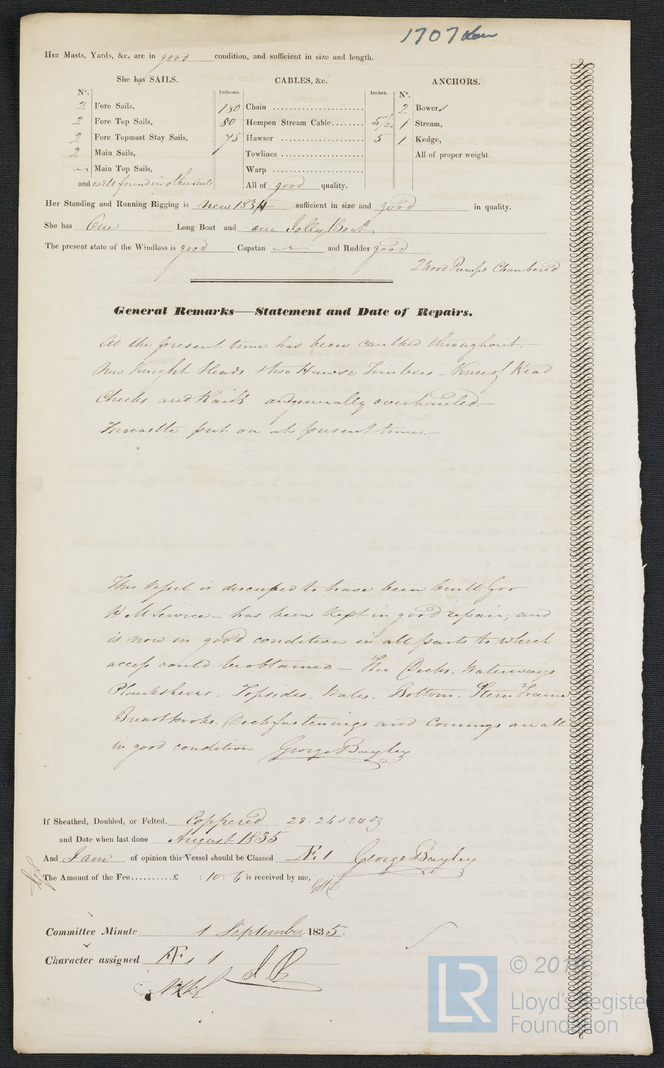 1707 Lon
Her Masts, Yards, &c. are in good condition, and sufficient in size and length.
She has SAILS. CABLES, &c. ANCHORS.
Nº. Fathoms. Inches. Nº.
2 Fore Sails, 180 Chain 2 Bowers
2 Fore Top Sails, 80 Hempen Stream Cable 5½ 1 Stream,
2 Fore Topmast Stay Sails, 75 Hawser 5 1 Kedge,
2 Main Sails, Towlines All of proper weight
Main Top Sails, Warp
and well found in other sails All of good quality.
Her Standing and Running Rigging is New 1834 sufficient in size and good in quality.
She has One Long Boat and one Jolly Boat
The present state of the Windlass is good Capstan and Rudder good
2 Wood Pumps Chambered
General Remarks—Statement and Date of Repairs.
At the present time has been caulked throughout—
New Knight Heads & two Hawse Timbers – Knee of Head
Cheeks and Rails and generally overhauled—
Forecastle put on at present time—
This Vessel is described to have been built for
H M Service – has been kept in good repair, and
is now in good condition in all parts to which
access could be obtained – The Decks, Waterways
Plankshears, Topsides, Wales, Bottom, Stern Frame
Breasthooks, Deck fastenings and Comings are all
in good condition George Bayley
If Sheathed, Doubled, or Felted, Coppered 28-26 & 24 oz
and Date when last done August 1835
And I am of opinion this Vessel should be Classed Æ 1 George Bayley
The Amount of the Fee..........£ 10-6 is received by me,
Committee Minute 1 September 1835.
Character assigned Æ 1
LR
© 201
Lloyd's Register
Foundation